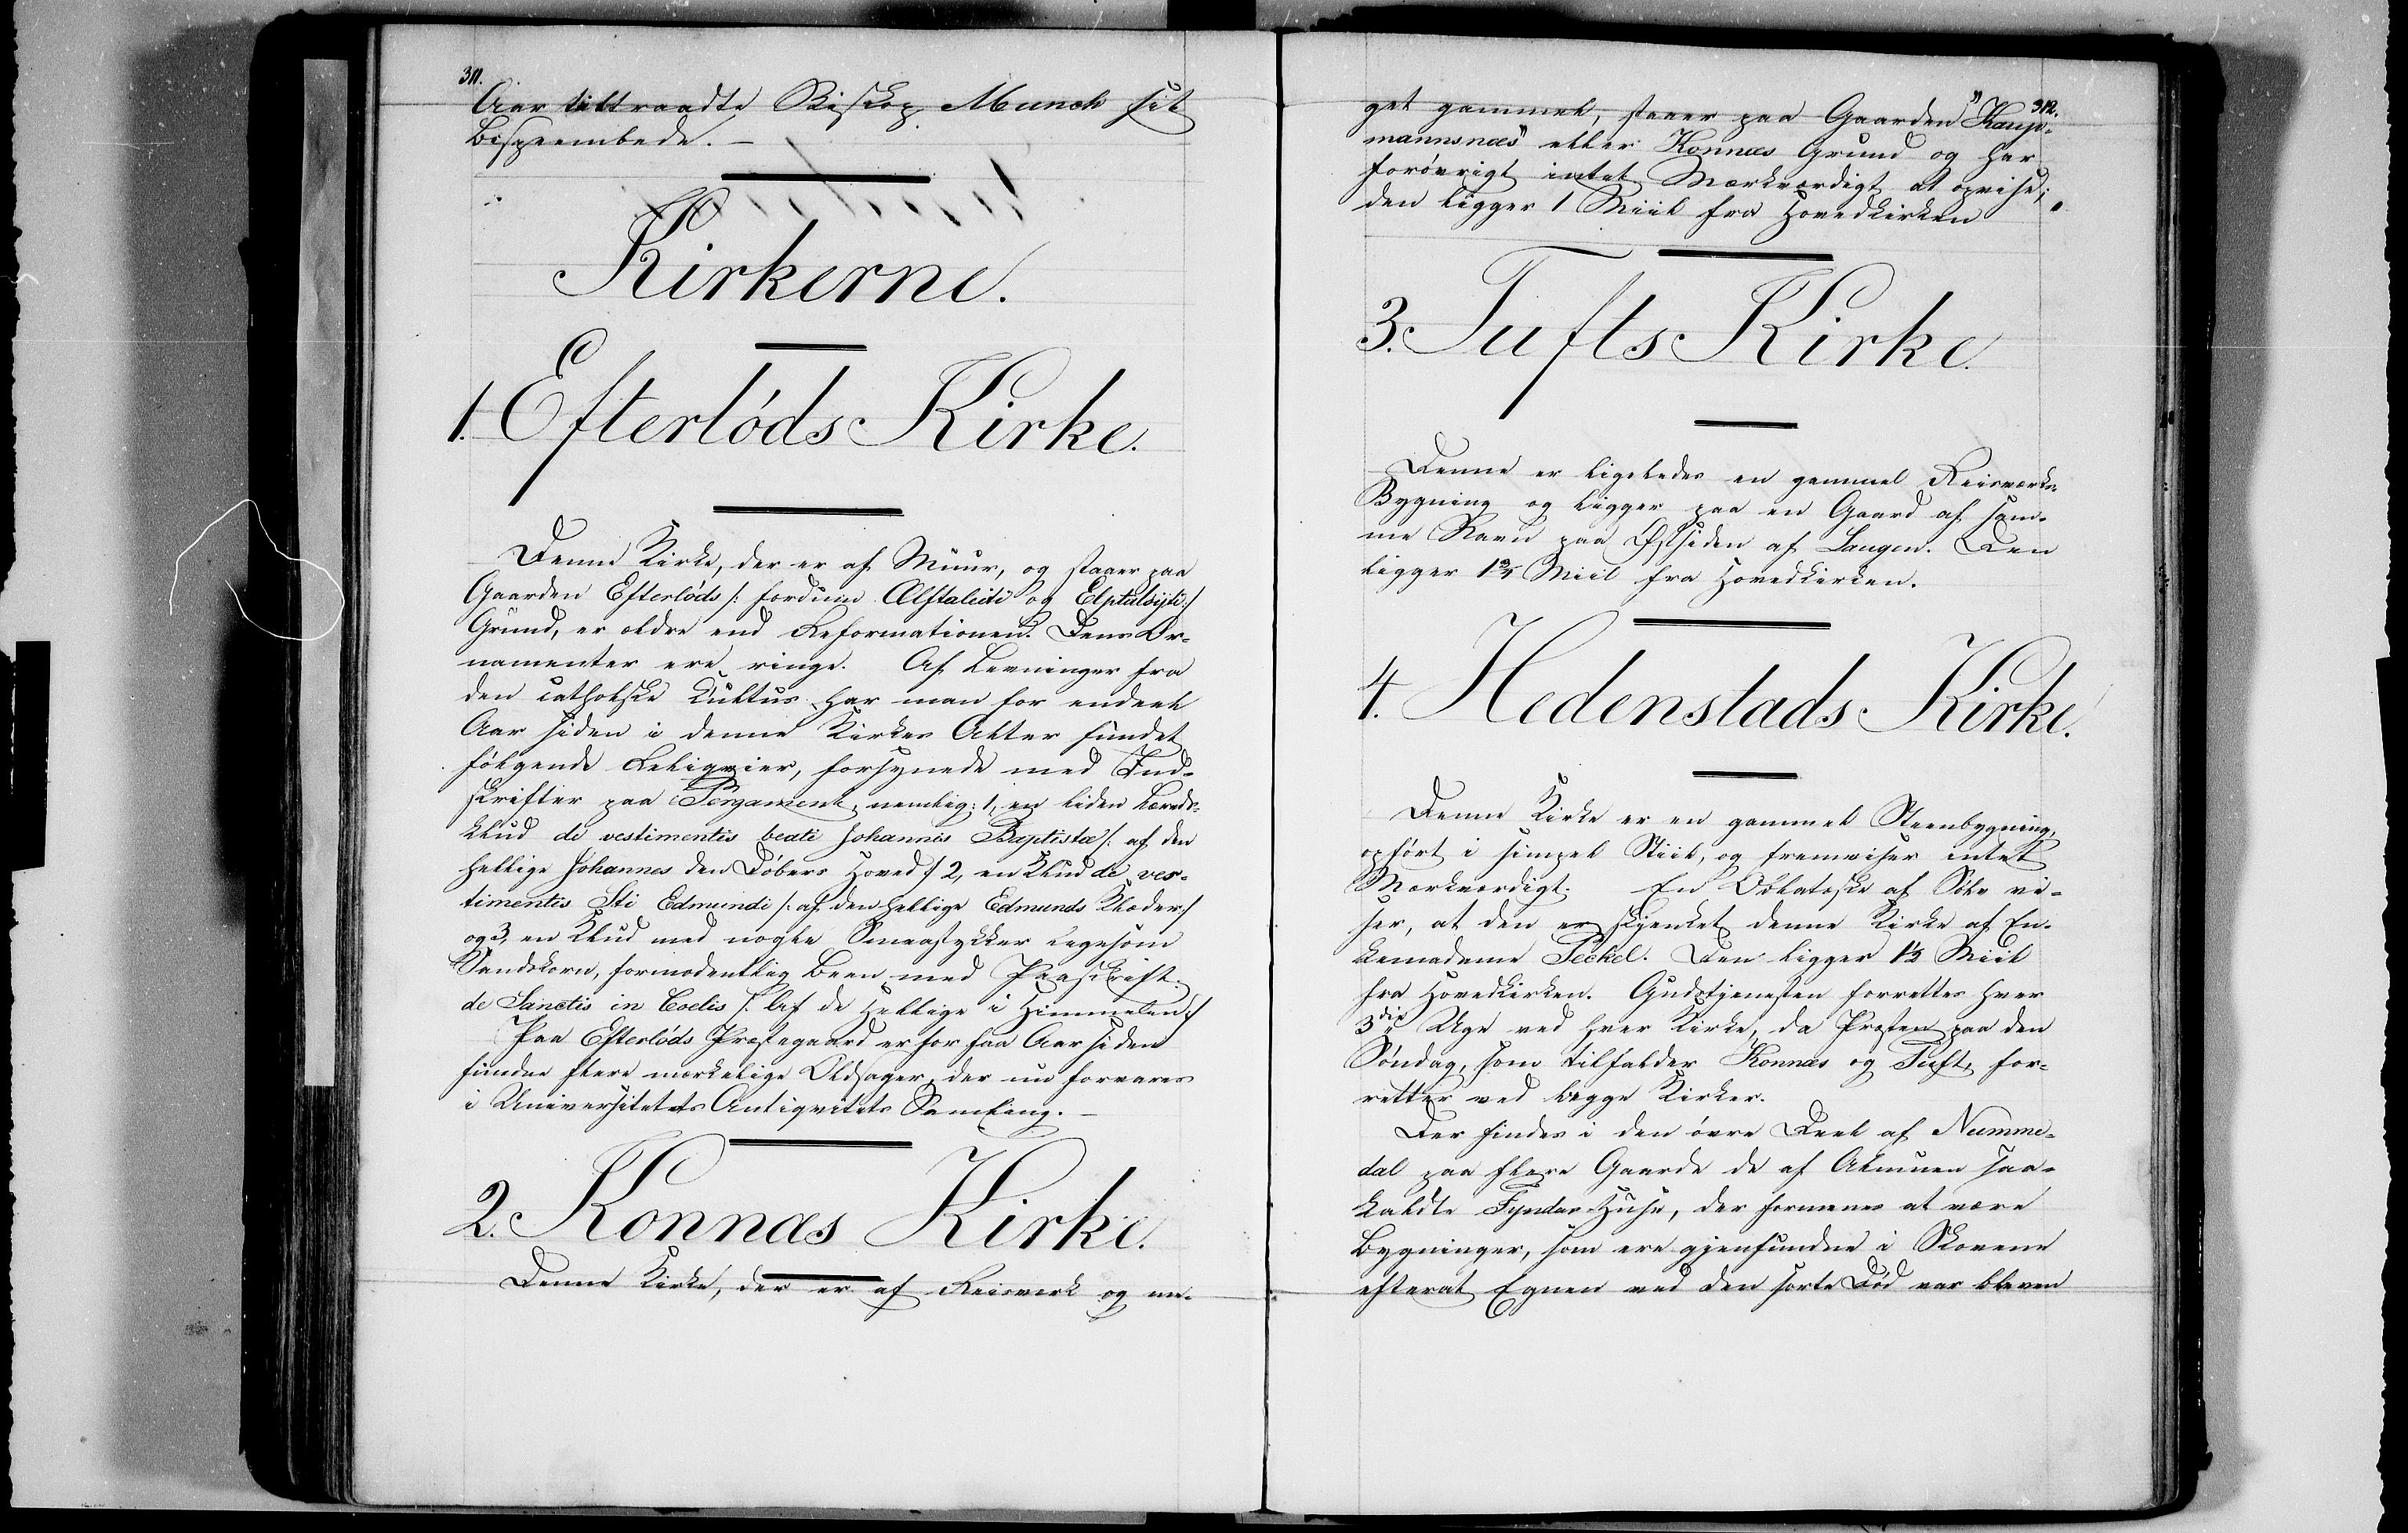 311.
Aar tiltraadte Biskop Munch sit
Bispeembede. –
Kirkerne.
1. Efterløds Kirke.
Denne Kirke, der er af Muur, og staaer paa
Gaarden Efterløds /: fordum Ælftaleiti og
Grund, er ældre end Reformationen. Dens Or-
namenter ere ringe. Af Levninger fra
den catholske Cultus har man for endeel
Aar siden i denne Kirkes Alter fundet
følgende Reliqvier, forsynede med Ind-
skrifter paa Pergament, nemlig: 1, en liden Lærreds-
klud de vestimentis beati Johannis Baptistæ /: af den
hellige Johannes den Døbers Hoved :/ 2, en Klud de ves-
timentis Sti Edmundi /: af den hellige Edmunds Klæder :/
og 3, en Klud med nogle Smaastykker ligesom
Sandskorn, formodentlig Been med Paaskrift:
de Sanctis in Coelis /: Af de Hellige i Himmelen :/
Paa Efterløds Præstegaard er for faa Aar siden
fundne flere mærkelige Oldsager, der nu forvares
i Universitetets Antiqvitets Samling. –
2. Konnæs Kirke.
Denne Kirke, der er af Reisværk og me-
312.
get gammel, staaer paa Gaarden "Kaup-
mannsnæs" eller Konnæs Grund og har
forøvrigt intet Mærkværdigt at opvise;
den ligger 1 Miil fra Hovedkirken.
3. Tufts Kirke.
Denne er ligeledes en gammel Reisværks-
Bygning og ligger paa en Gaard af sam-
me Navn paa Østsiden af Laugen. Den
ligger 1¾ Miil fra Hovedkirken.
4. Hedenstads Kirke.
Denne Kirke er en gammel Steenbygning,
opført i simpel Stiil, og fremviser intet
Mærkværdigt. En Oblatæske af Sølv vi-
ser, at den er skjenket denne Kirke af En-
kemadame Peckel. Den ligger 1½ Miil
fra Hovedkirken. Gudstjenesten forrettes hver
3die Uge ved hver Kirke, da Præsten paa den
Søndag, som tilfalder Konnæs og Tuft, for-
retter ved begge Kirker.
Der findes i den øvre Deel af Numme-
dal paa flere Gaarde de af Almuen saa-
kaldte Fyndas-Huse, der formenes at være
Bygninger, som ere gjenfundne i Skovene
efterat Egnen ved den sorte Død var bleven